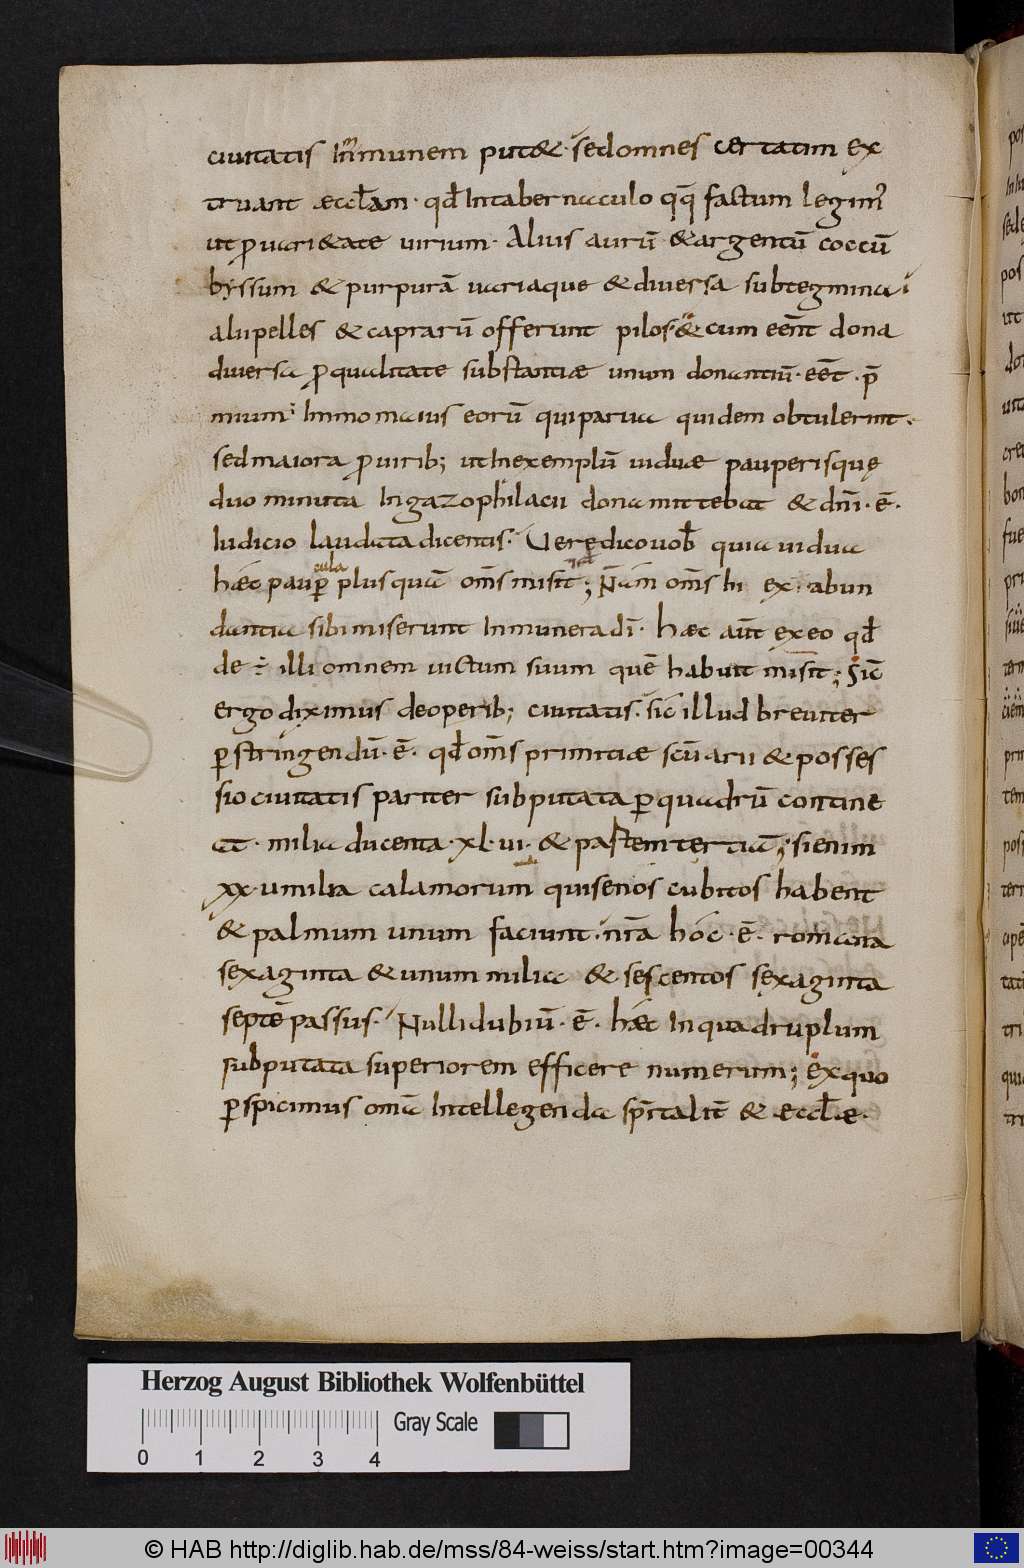 ciuitatis Inmunem put& · sed omnes certatim ex
truant æccl̄am · qd̄ Intabernaculo qq̄ factum legim᾽
ut ꝓuari&ate uirium · Alius aurū & argentū coccū
byssum & purpurā uariaque & diuersa subtegmina ·
alii pelles & caprarū offerunt pilos · & cum eēnt dona
diuersa ꝓqualitate substantiæ unum donantiū · eēt · p̄
mium · Immo maius eorū qui parua quidem obtulerint ·
sed maiora ꝓuirib; ut Inexemplū uiduæ pauperisquę
duo minuta Ingazophilacii dona mittebat & dn̄i · ē ·
Iudicio laudata dicentis · Uere dico uob̄ quia uidua
hæc paup̱cula plus quā om̄s misit; Nam om̄s hi ex abun
dantia sibi miserunt Inmunera dī · hæc aūt ex eo qd̄
de ÷ illi omnem uictum suum quē habuit misit; Sic
ergo diximus de operib; ciuitatis · sic illud breuiter
ꝑstringendū · ē · qd̄ om̄s primitiæ sc̄uarii & posses
sio ciuitatis pariter subputata ꝑquadrū contine
at · milia ducenta · xl · ui · & pastem tertiā; si enim
xx · u milia calamorum qui senos cubitos habent
& palmum unum faciunt · nr̄a hoc · ē · romana
sexaginta & unum milia & sescentos sexaginta
septē passus · Nulli dubiū · ē · hæc Inquadruplum
subputata superiorem efficere numerum; ex quo
ꝑspicimus omā Intellegenda sp̄italit̄ & æccl̄æ ·
Herzog August Bibliothek Wolfenbüttel
Gray Scale
0 1 2 3 4
© HAB http://diglib.hab.de/mss/84-weiss/start.htm?image=00344